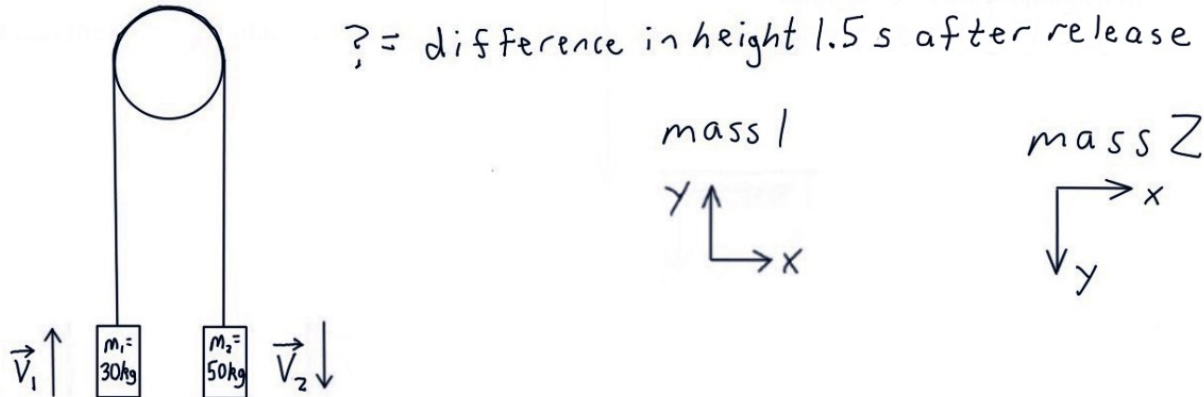 ? = difference in height 1.5 s after release
mass 1
mass 2
Y
X
x
y
V₁
m₁=
30kg
m₂=
50kg
V₂